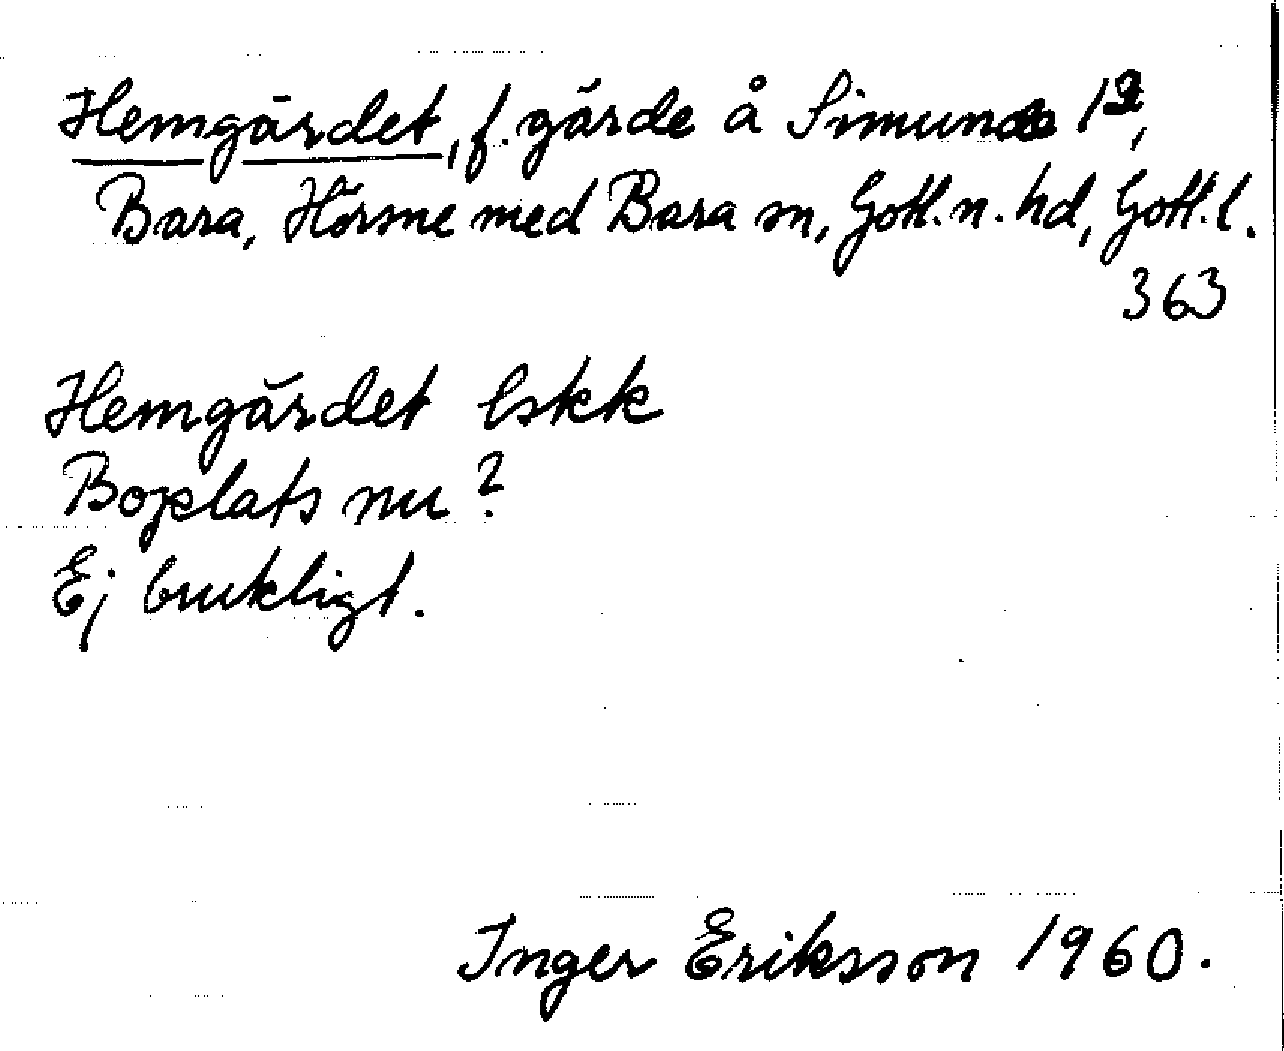 Hemgärdet, f. gärde å Simunde 1²,
Bara, Hörsne med Bara sn, Gotl. n. hd, Gotl. l.
363
Hemgärdet Cskk
Boplats nu?
Ej brukligt.
Inger Eriksson 1960.